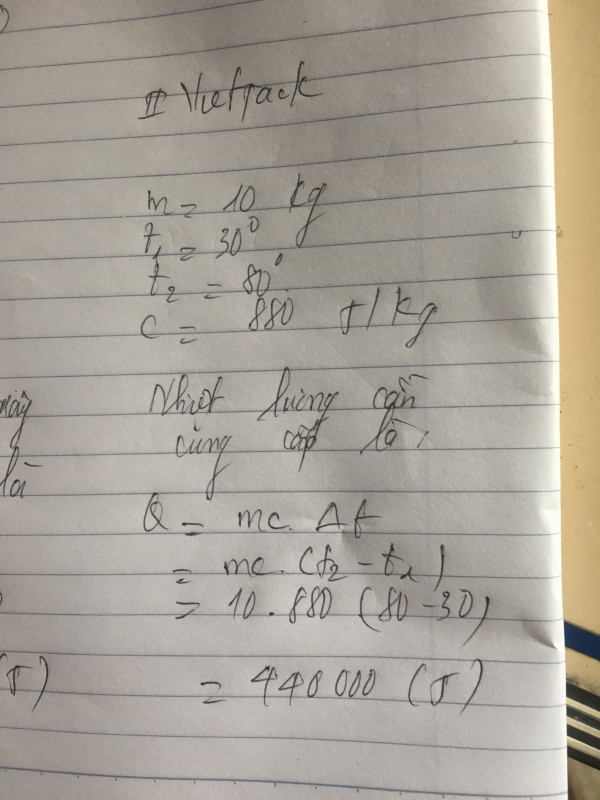 II Vietjack
m = 10 kg
t₁ = 30°
t₂ = 80°
c = 880 J/kg
Nhiệt lượng cần
cung cấp là:
là
Q = mc. Δt
= mc. (t₂ - t₁)
= 10.880 (80-30)
(J)
= 440 000 (J)